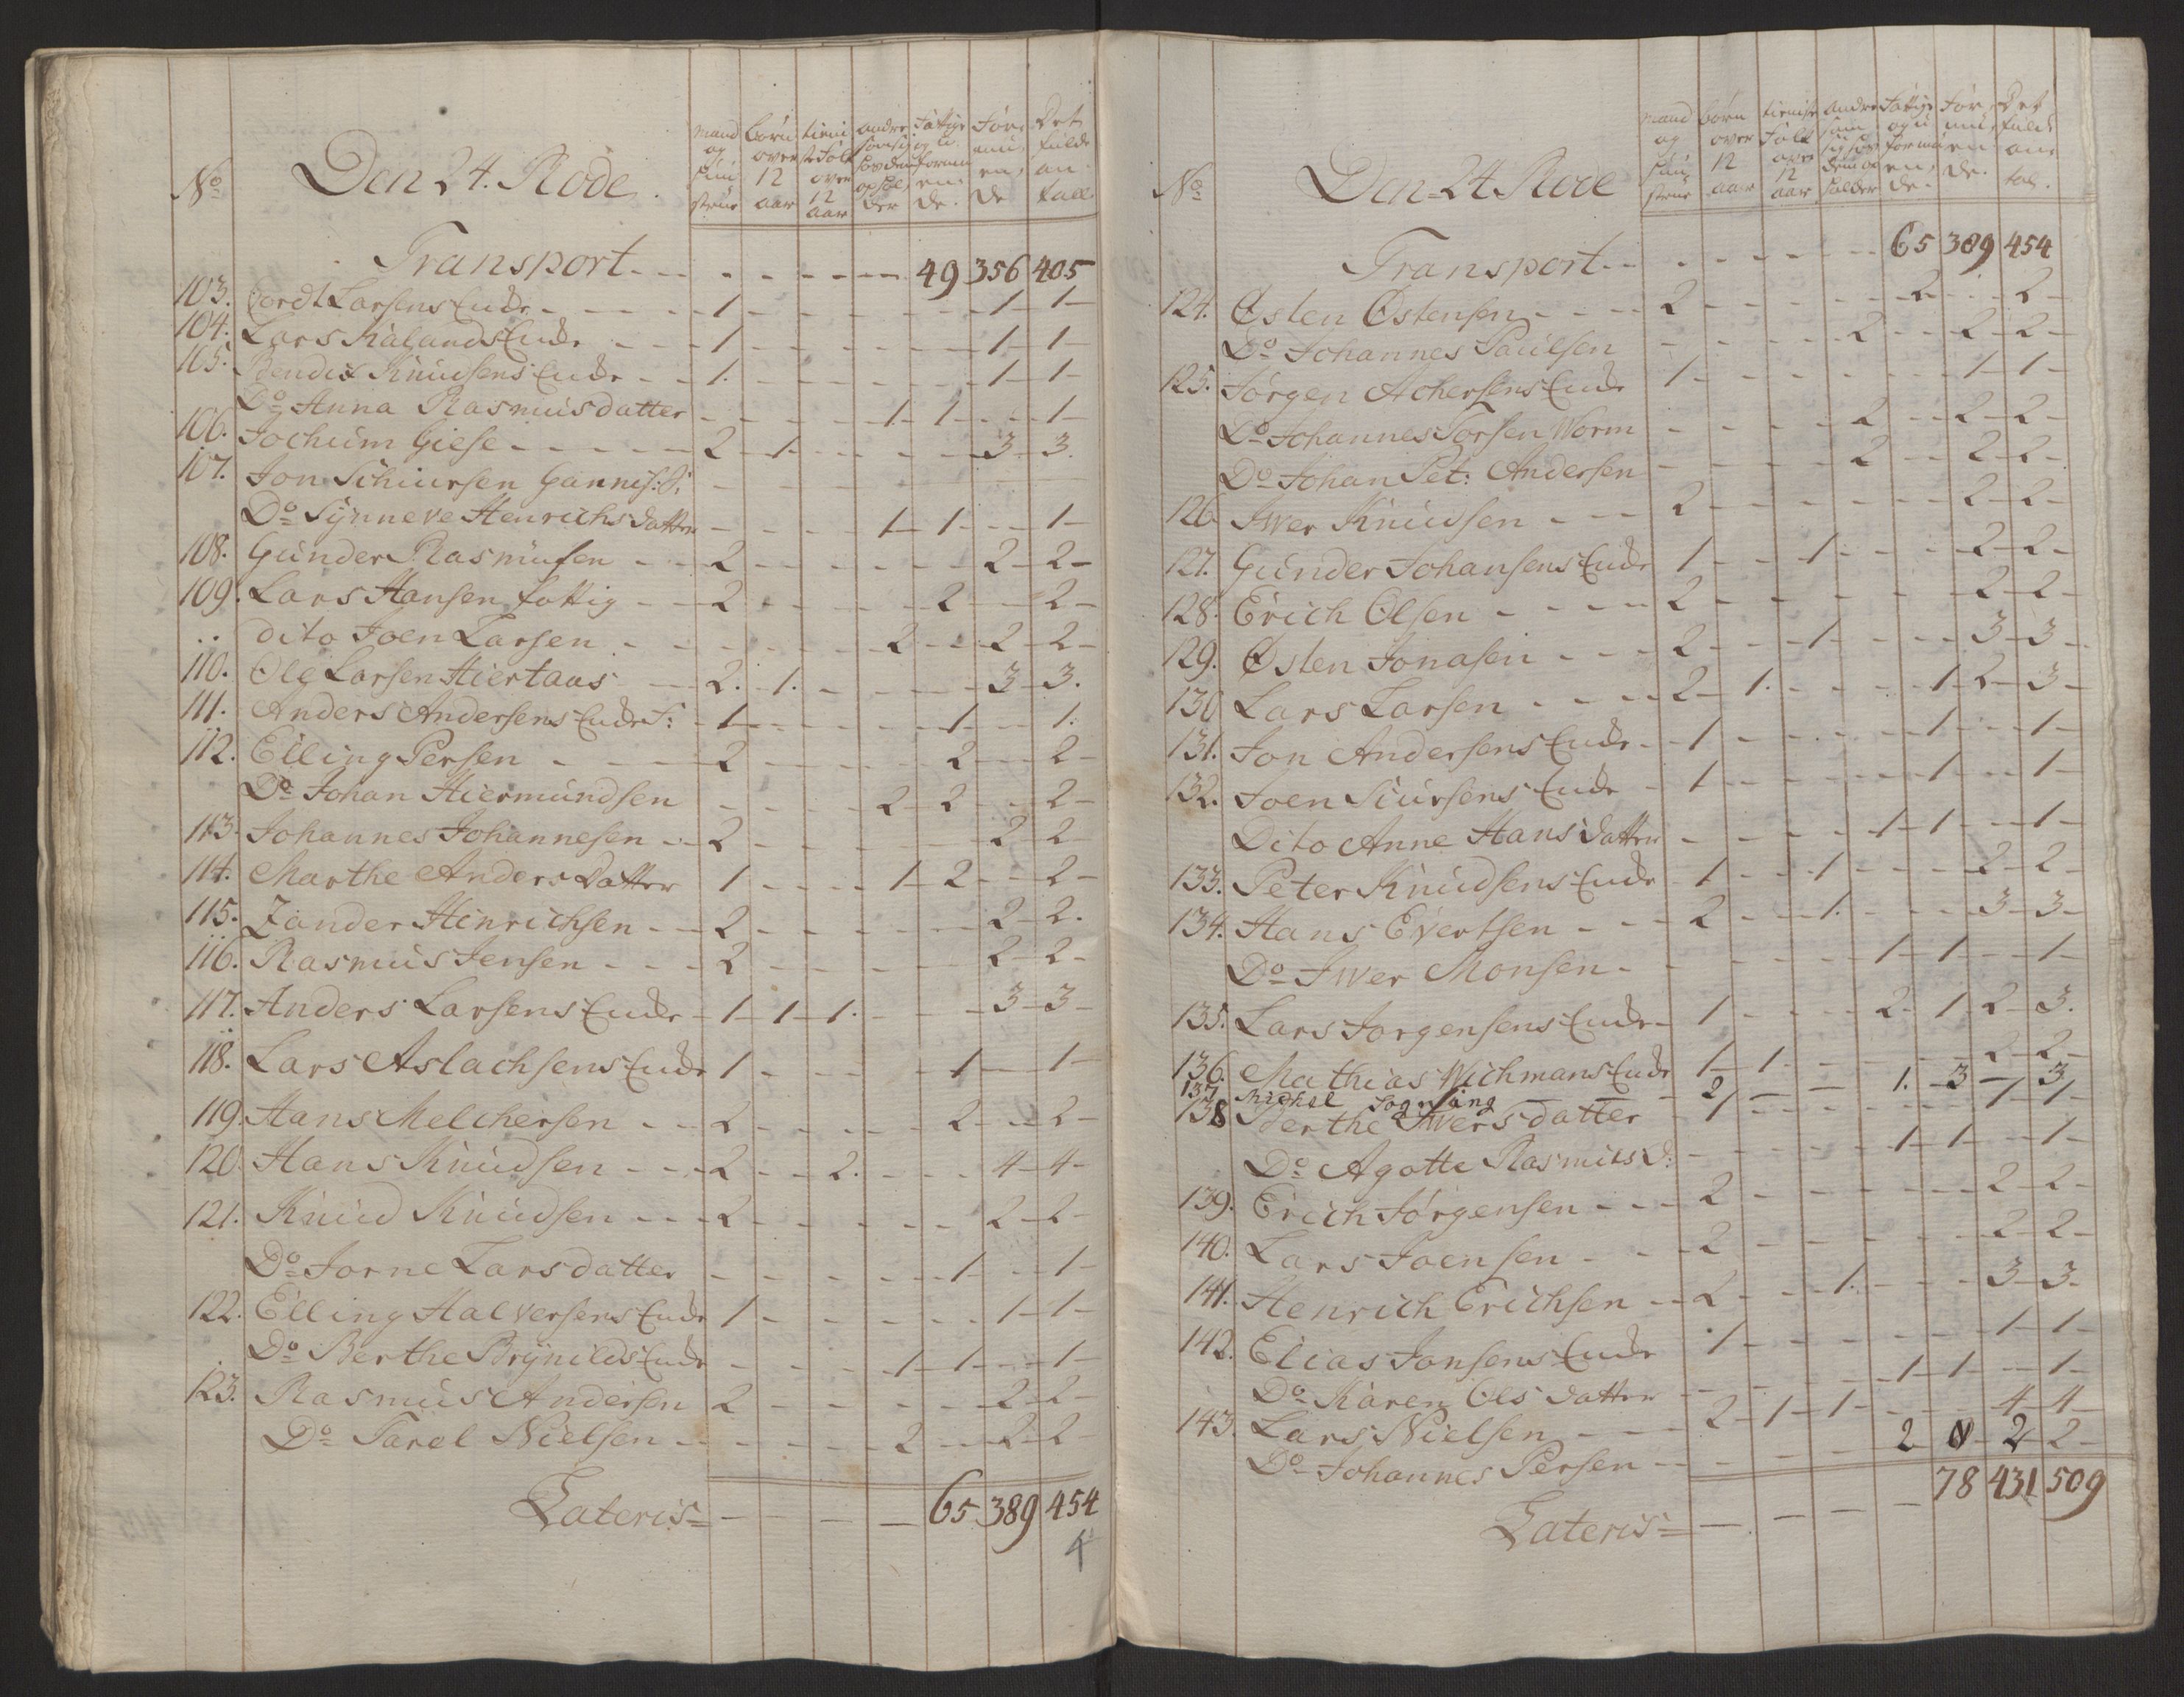 No
Den 24. Rode.
Mand og Hustrue
børn over 12 aar
tieniste Folk over 12 aar
andre
Fattige og u formuende
Formuende
Det fulde antall.
Transport - - - - - - 49 356 405
103. Cordt Larsens Encke - 1 - - - - - 1 - 1
104. Lars Kalands Encke - 1 - - - - - 1 - 1
105. Bendix Knudsens Encke - 1. - - - - - 1 - 1
Do Anna Rasmusdatter - - - - 1 - 1 - - 1
106. Jochum Giese - 2 - 1 - - - - 3 - 3.
107. Jon Schiursen - - - -
Do Synneve Henrichsdatter - - - - 1 - 1 - - 1
108. Gunder Rasmusen - 2 - - - - - 2 - 2
109. Lars Hansen fattig - 2 - - - - 2 - - 2
dito Joen Larsen - - - - 2 - - 2 - 2
110. Ole Larsen Hiertaas - 2. 1. - - - - 3 - 3.
111. Anders Andersens Encke F: - 1 - - - - 1 - - 1.
112. Elling Persen - 2 - - - - 2 - - 2
Do Johan Hiermundsen - - - - 2 - 2 - - 2
113. Johannes Johannesen - 2 - - - - - 2 - 2
114. Marthe Anders datter 1 - - - 1 - 2 - - 2
115. Zander Hinrichsen - 2 - - - - - 2 - 2.
116. Rasmus Jensen - 2 - - - - - 2 - 2
117. Anders Larsens Encke - 1 - 1 - 1. - - - 3 - 3
118. Lars Aslachsens Encke 1 - - - - 1 - - 1
119. Hans Melchersen - 2 - - - - 2 - - 2
120. Hans Knudsen - 2 - - 2. - - - 4 - 4
121. Knud Knudsen - 2 - - - - - 2 - 2
Do Jorne Larsdatter - - - - - 1 - - 1
122. Elling Halversens Encke 1 - - - - - 1 - 1
Do Berthe Brynilds Encke - - - - 1 - 1 - - 1
123. Rasmus Andersen 2 - - - - - 2 - 2
Do Tarel Nielsen - - - - 2 - - 2 - 2
Lateris = - - - - 65 389 454
4
No
Den 24 Rode
Mand og Hustrue
børn over 12 aar
tieniste Folk over 12 aar
Andre
Fattige og u formuende.
Formuende.
Det fulde antal.
Transport - - - - - - 65 389 454
124. Østen Østensen - 2 - - - - 2 - - 2
Do Johannes Paulsen - - - - 2 - - 2 - 2
125. Jørgen Achersens Encke 1 - - - - - 1 - 1
Do Johannes Torsen Worm - - - - 2 - - 2 - 2
Do Johan Pet: Andersen - - - - 2 - - 2 - 2
126. Iver Knudsen - 2 - - - - - 2 - 2
127. Gunder Johansens Encke 1 - - 1 - - - 2 - 2
128. Erich Olsen - 2 - - - - - 2 - 2
129. Østen Jonasen - 2 - - 1 - - - 3 - 3
130. Lars Larsen - 2 - 1. - - - 1 - 2 - 3
131. Jon Andersens Encke - 1 - - - - 1 - - 1
132. Joen Siursens Encke - 1 - - - - 1 - - 1
Dito Anne Hans datter - - - - 1 - 1 - - 1
133. Peter Knudsens Encke - 1 - - 1 - - - 2 - 2
134. Hans Evertsen - 2 - - 1. - - - 3 - 3
Do Iver Monsen - - - - 1 - 1 - - 1
135. Lars Jorgensens Encke - 1 - - - 2. 1 2 - 3.
136. Mathias Wichmans Encke 1 - 1. - - - - 2 - 2
137. Michel Sogning - 2 - - 1. - 3 - 3
138 Berthe Iversdatter 1 - - - - - 1 - 1
Do Agotte Rasmus D: - - - - 1 - 1 - - 1
139. Erich Jørgensen - 2 - - - - - 2 - 2
140. Lars Joensen - 2 - - - - - 2 - 2
141. Henrich Erichsen - 2 - - 1. - - - 3 - 3
142. Elias Jonsens Encke 1 - - - - - 1 - 1
Do Karen Ols datter - - - - 1 - 1 - - 1
143. Lars Nielsen - 2 - 1 - 1 - - - 4 - 4
Do Johannes Persen - - - - 2 0 - 2 2
Lateris = - - - - 78 431 509